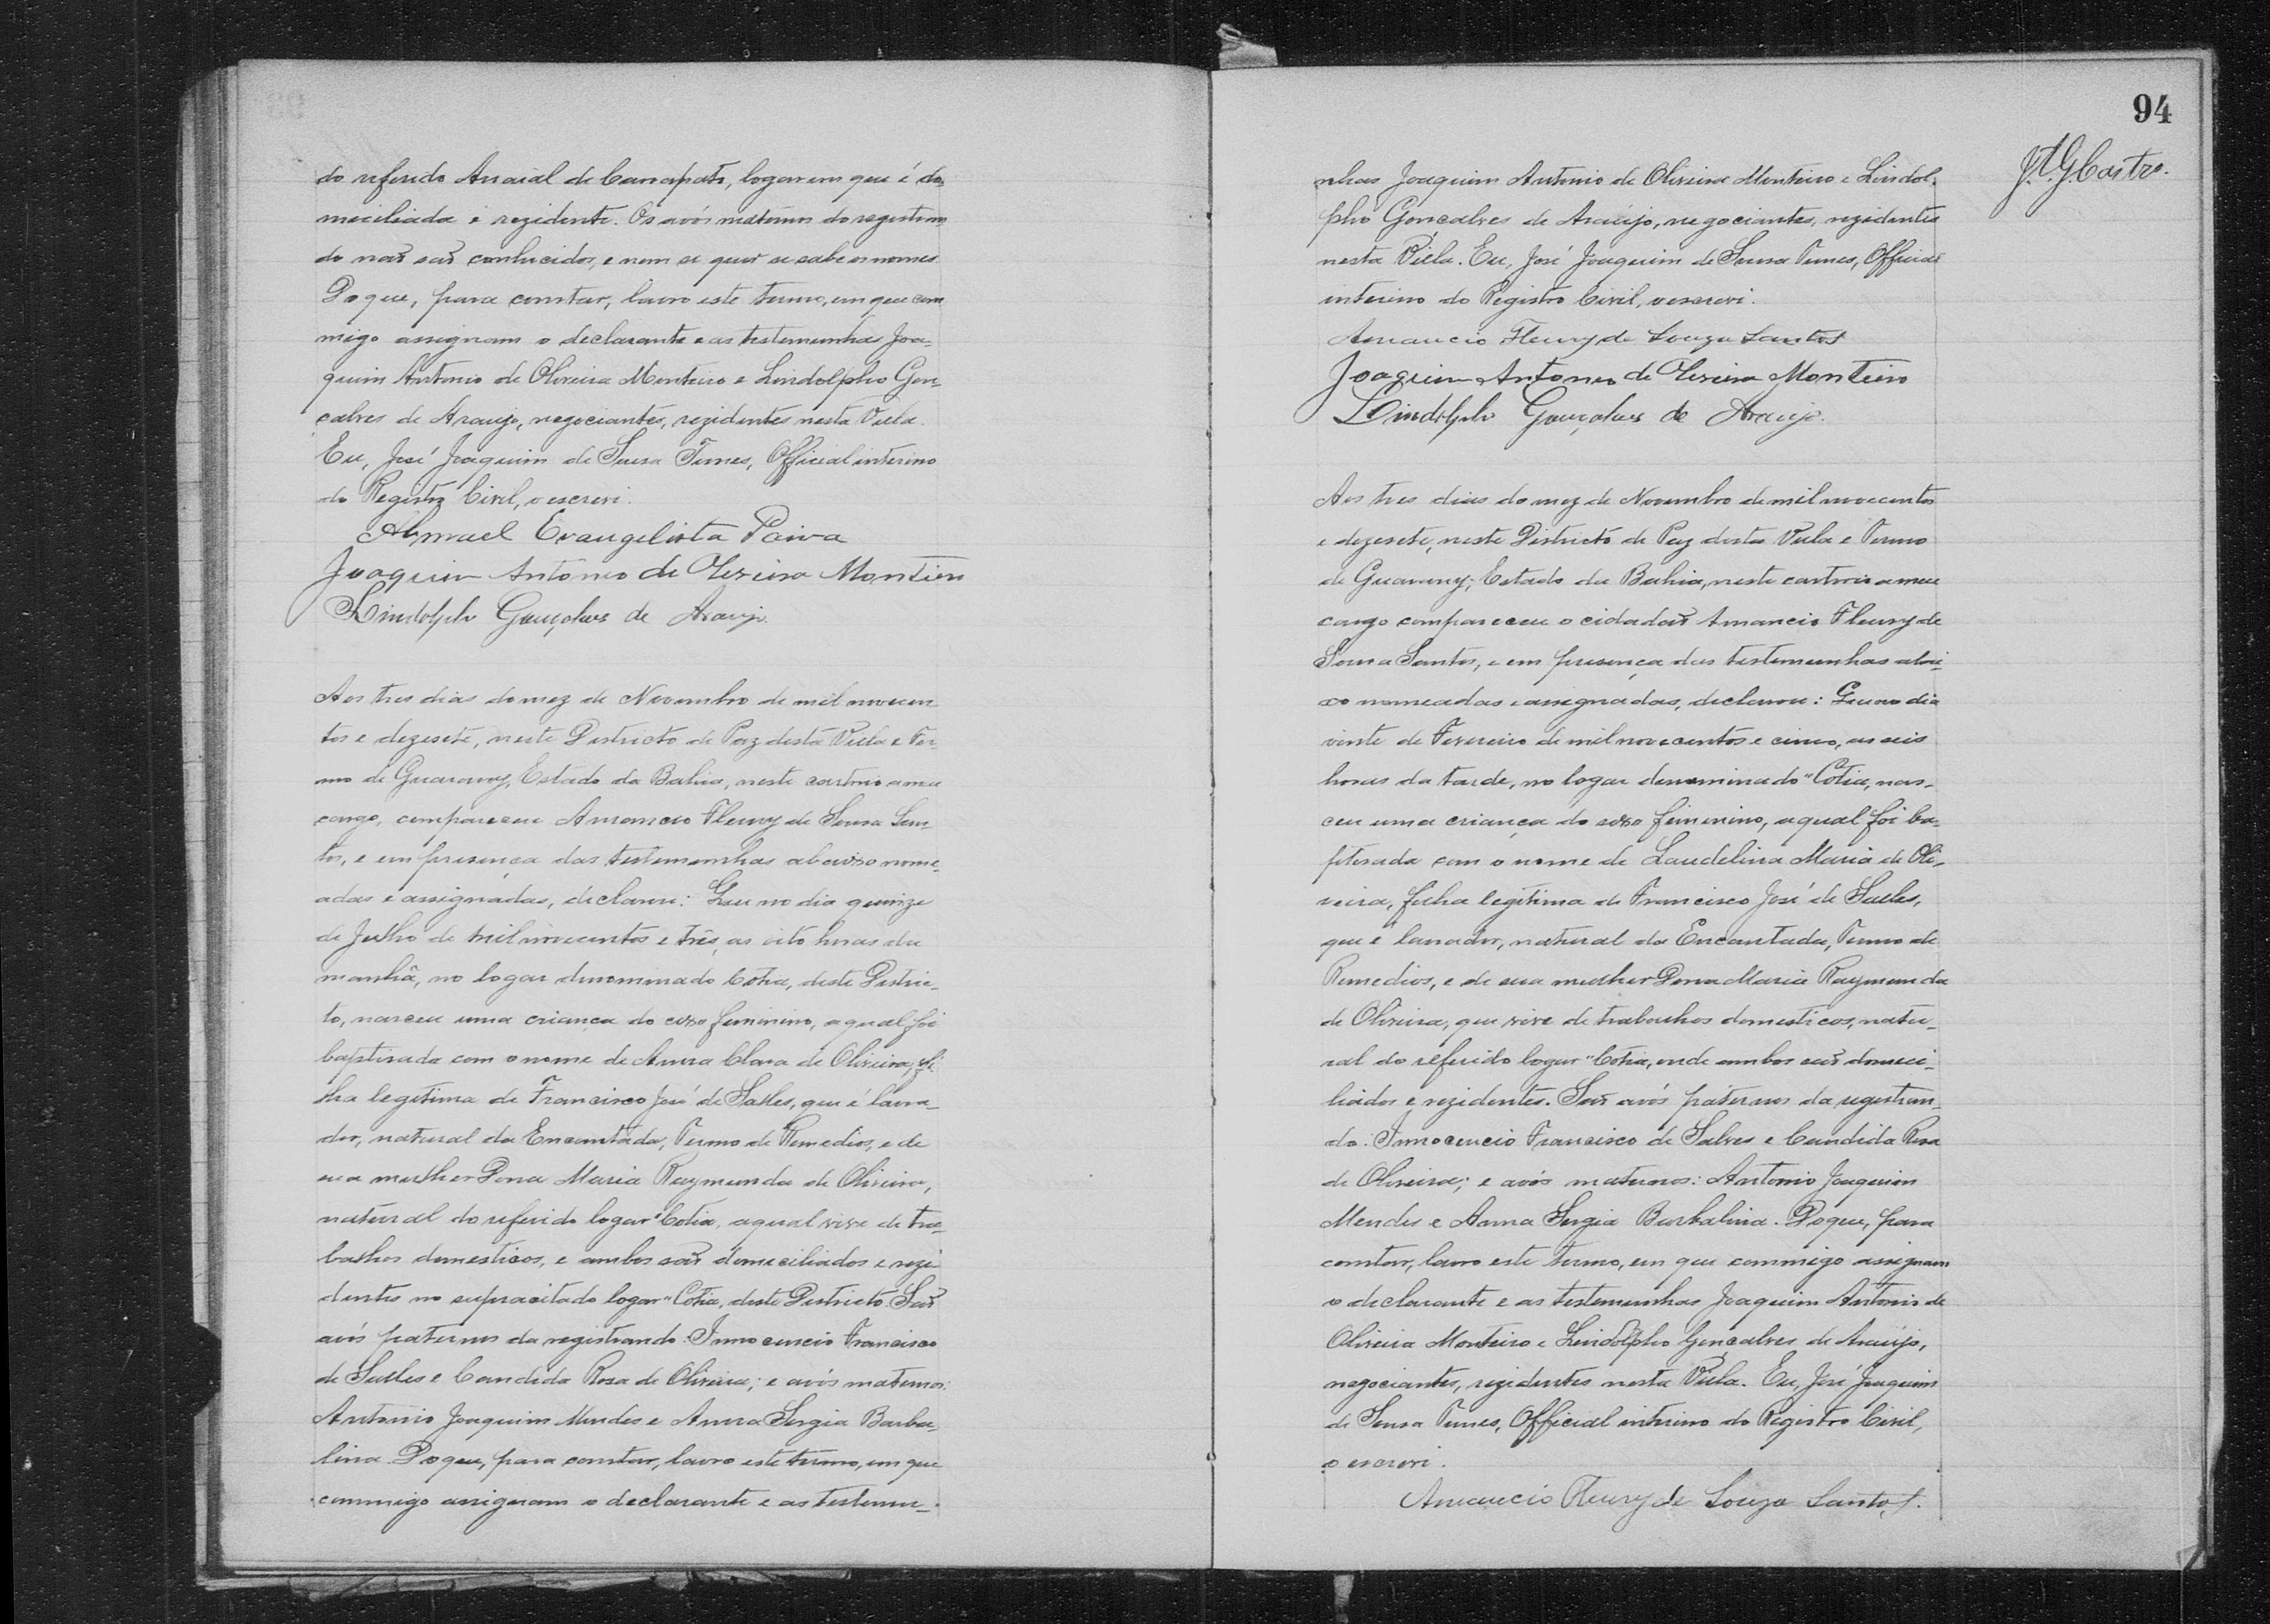 do referido Arraial de Canapató, logar em que é do-
miciliada e rezidente. Os avós maternos do registran-
do não são conhecidos, e nem se quer se sabe os nomes.
Do que, para constar, lavro este termo, em que com-
migo assignam o declarante e as testemunhas Joa-
quim Antonio de Oliveira Monteiro e Lindolpho Gon-
calves de Araujo, negociantes, rezidentes nesta Villa.
Eu, José Joaquim de Sousa Tunes, Official interino
do Registro Civil, o escrevi.
Evangelista Paiva
Joaquim Antonio de Oliveira Monteiro
Lindolpho Gonçalves de Araujo.
Aos tres dias do mez de Novembro de mil novecen-
tos e dezesete, neste Districto de Paz desta Villa e Ter-
mo de Guarany, Estado da Bahia, neste cartorio a meu
cargo, compareceu Amancio Fleury de Sousa San-
tos, e em presença das testemunhas abaixo nome-
adas e assignadas, declarou: Que no dia quinze
de Julho de mil novecentos e três, as oito horas da
manhã, no logar denominado Cotia, deste Distric-
to, nasceu uma criança do sexo feminino, a qual foi
baptisada com o nome de Anna Clara de Oliveira, fi-
lha legitima de Francisco José de Salles, que é lavra-
dor, natural da Encantada, Termo de Remedios, e de
sua mulher Dona Maria Raymunda de Oliveira,
natural do referido logar "Cotia, a qual vive de tra-
balhos domesticos, e ambos são domiciliados e rezi-
dentes no supracitado logar "Cotia, deste Districto. São
avós paternos da registrando: Innocencio Francisco
de Salles e Candida Rosa de Oliveira; e avós maternos:
Antonio Joaquim Mendes e Anna Sergia Barba-
lina. Do que, para constar, lavro este termo, em que
commigo assignam o declarante e as testemu-
94
J. A. G. Castro.
nhas Joaquim Antonio de Oliveira Monteiro e Lindol-
pho Gonçalves de Araújo, negociantes, rezidentes
nesta Villa. Eu, José Joaquim de Sousa Tunes, Official
interino do Registro Civil, o escrevi.
Amancio Fleury de Souza Santos
Joaquim Antonio de Oliveira Monteiro
Lindolpho Gonçalves de Araujo.
Aos tres dias do mez de Novembro de mil novecentos
e dezesete, neste Districto de Paz desta Villa e Termo
de Guarany, Estado da Bahia, neste cartorio a meu
cargo compareceu o cidadão Amancio Fleury de
Sousa Santos, e em presença das testemunhas abai-
xo nomeadas e assignadas, declarou: Que no dia
vinte de Fevereiro de mil novecentos e cinco, as seis
horas da tarde, no logar denominado "Cotia, nas-
ceu uma criança do sexo feminino, a qual foi ba-
ptisada com o nome de Laudelina Maria de Oli-
veira, filha legitima de Francisco José de Salles,
que é lavrador, natural da Encantada, Termo de
Remedios, e de sua mulher Dona Maria Raymunda
de Oliveira, que vive de trabalhos domesticos, natu-
ral do referido logar "Cotia, onde ambos são domici-
liados e rezidentes. São avós paternos da registran-
do: Innocencio Francisco de Salves e Candida Rosa
de Oliveira; e avós maternos: Antonio Joaquim
Mendes e Anna Sergia Barbalina. Do que, para
constar, lavro este termo, em que commigo assignam
o declarante e as testemunhas Joaquim Antonio de
Oliveira Monteiro e Lindolpho Gonçalves de Araújo,
negociantes, rezidentes nesta Villa. Eu, José Joaquim
de Sousa Tunes, Official interino do Registro Civil,
o escrevi.
Amancio Fleury de Souza Santos.